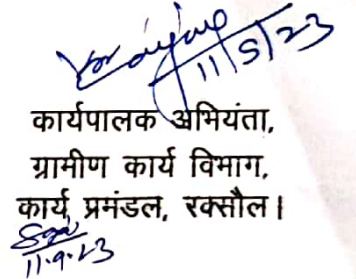 11/5/23
कार्यपालक अभियंता,
ग्रामीण कार्य विभाग,
कार्य प्रमंडल, रक्सौल।
11.9.23